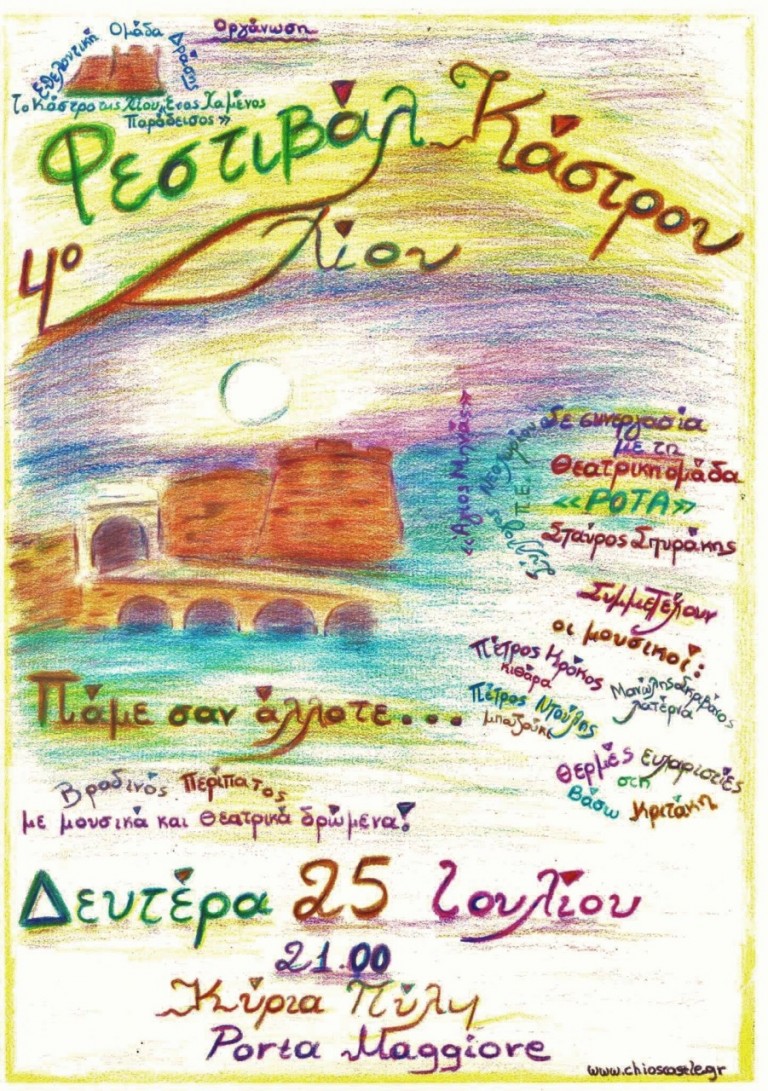 Οργάνωση
Εθελοντική Ομάδα Δράσης
Το Κάστρο της Χίου, Ένας Χαμένος
Παράδεισος»
4º Φεστιβάλ Κάστρου
Χίου
Σε συνεργασία
με τη
Θεατρική ομάδα
«ΡΟΤΑ»
Σταύρος Σπυράκης
«Άγιος Μηνάς»
Νεοχωρίου
Π.Ε.
Συμμετέχουν
οι μουσικοί:
Πέτρος Κρόκος
κιθάρα
Μανώλης
λατέρνα
Πέτρος Ντούλης
μπουζούκι
Πάμε σαν άλλοτε...
Θερμές ευχαριστίες
στη
Βάσω Κριτάκη
Βραδινός Περίπατος
με μουσικά και θεατρικά δρώμενα!
Δευτέρα 25 Ιουλίου
21.00
Κύρια Πύλη
Porta Maggiore
www.chioscastle.gr